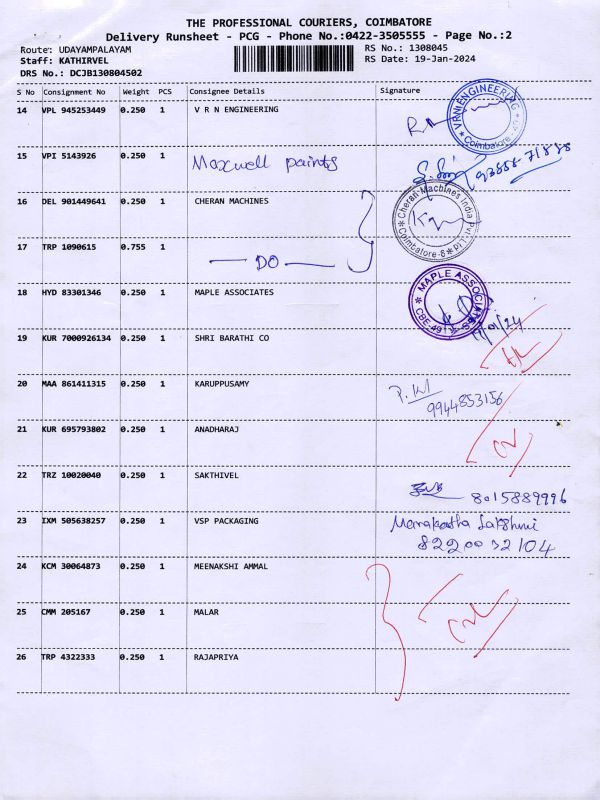 THE PROFESSIONAL COURIERS, COIMBATORE
Delivery Runsheet - PCG - Phone No.:0422-3505555 - Page No.:2
Route: UDAYAMPALAYAM RS No.: 1308045
Staff: KATHIRVEL RS Date: 19-Jan-2024
DRS No.: DCJB130804502
S No Consignment No Weight PCS Consignee Details Signature
14 VPL 945253449 0.250 1 V R N ENGINEERING
VRN ENGINEERING Coimbatore
15 VPI 5143926 0.250 1 Maxwell paints 93858-71888
16 DEL 901449641 0.250 1 CHERAN MACHINES
Cheran Machines India Pvt. Ltd Coimbatore-6
17 TRP 1090615 0.755 1 DO
18 HYD 83301346 0.250 1 MAPLE ASSOCIATES
MAPLE ASSOCIATES CBE-49
19 KUR 7000926134 0.250 1 SHRI BARATHI CO
20 MAA 861411315 0.250 1 KARUPPUSAMY
9944853156
21 KUR 695793802 0.250 1 ANADHARAJ
22 TRZ 10020040 0.250 1 SAKTHIVEL
8015889996
23 IXM 505638257 0.250 1 VSP PACKAGING
8220032104
24 KCM 30064873 0.250 1 MEENAKSHI AMMAL
25 CMM 205167 0.250 1 MALAR
26 TRP 4322333 0.250 1 RAJAPRIYA